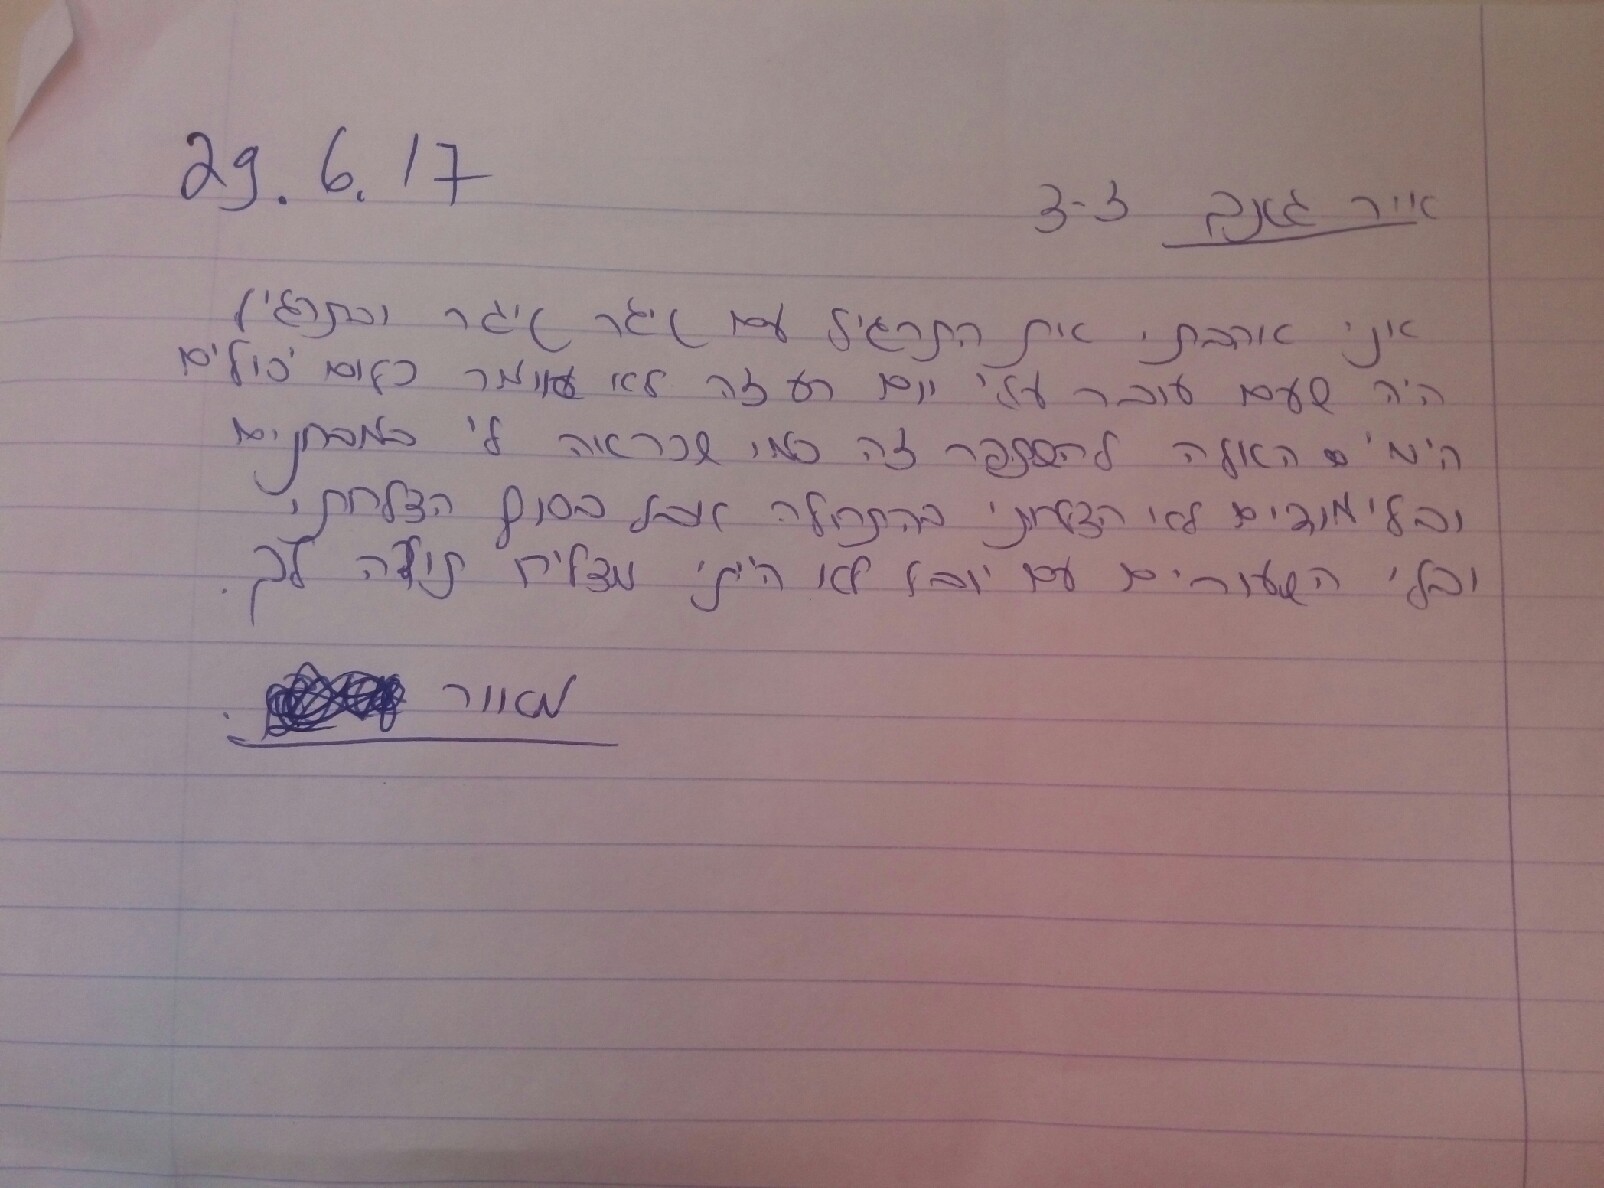 29.6.17
אייר גאנק 3-3
אני אהבתי את התרגיל עם איגר איגר ובתרגיל
היה שעם עובר עלי יום רע זה לא אומר כלום יכולים
הימים האלה להשתפר זה כמו שכראיה לי במבחנים
ובלימודים לא הצלחתי בהתחלה אבל בסוף הצלחתי
ובלי השעורים עם יובל לא הייתי מצליח תודה לך.
מאור